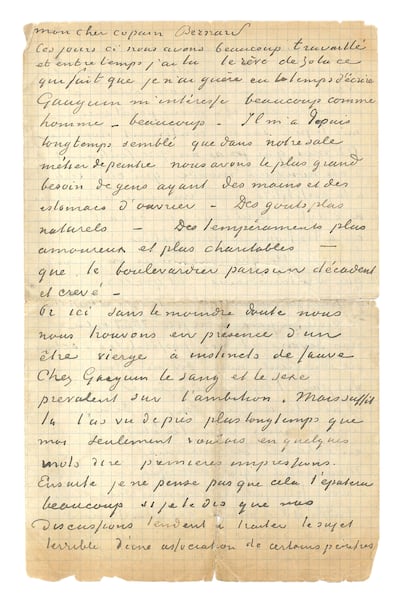 mon cher copain Bernard
Ces jours ci nous avons beaucoup travaillé
et entretemps j'ai lu le rêve de Zola ce
qui fait que je n'ai guère eu le temps d'écrire
Gauguin m'intéresse beaucoup comme
homme – beaucoup – Il m'a depuis
longtemps semblé que dans notre sale
métier de peintre nous avons le plus grand
besoin de gens ayant des mains et des
estomacs d'ouvrier – Des gouts plus
naturels – Des tempéraments plus
amoureux et plus charitables –
que le boulevardier parisien décadent
et crevé –
Or ici sans le moindre doute nous
nous trouvons en présence d'un
être vierge à instincts de fauve
Chez Gauguin le sang et le sexe
prevalent sur l'ambition. Mais suffit
tu l'as vu de près plus longtemps que
moi seulement voulais en quelques
mots dire premieres impressions.
Ensuite je ne pense pas que cela t'epatera
beaucoup si je te dis que nos
Discussions tendent à traiter le sujet
terrible d'une association de certains peintres